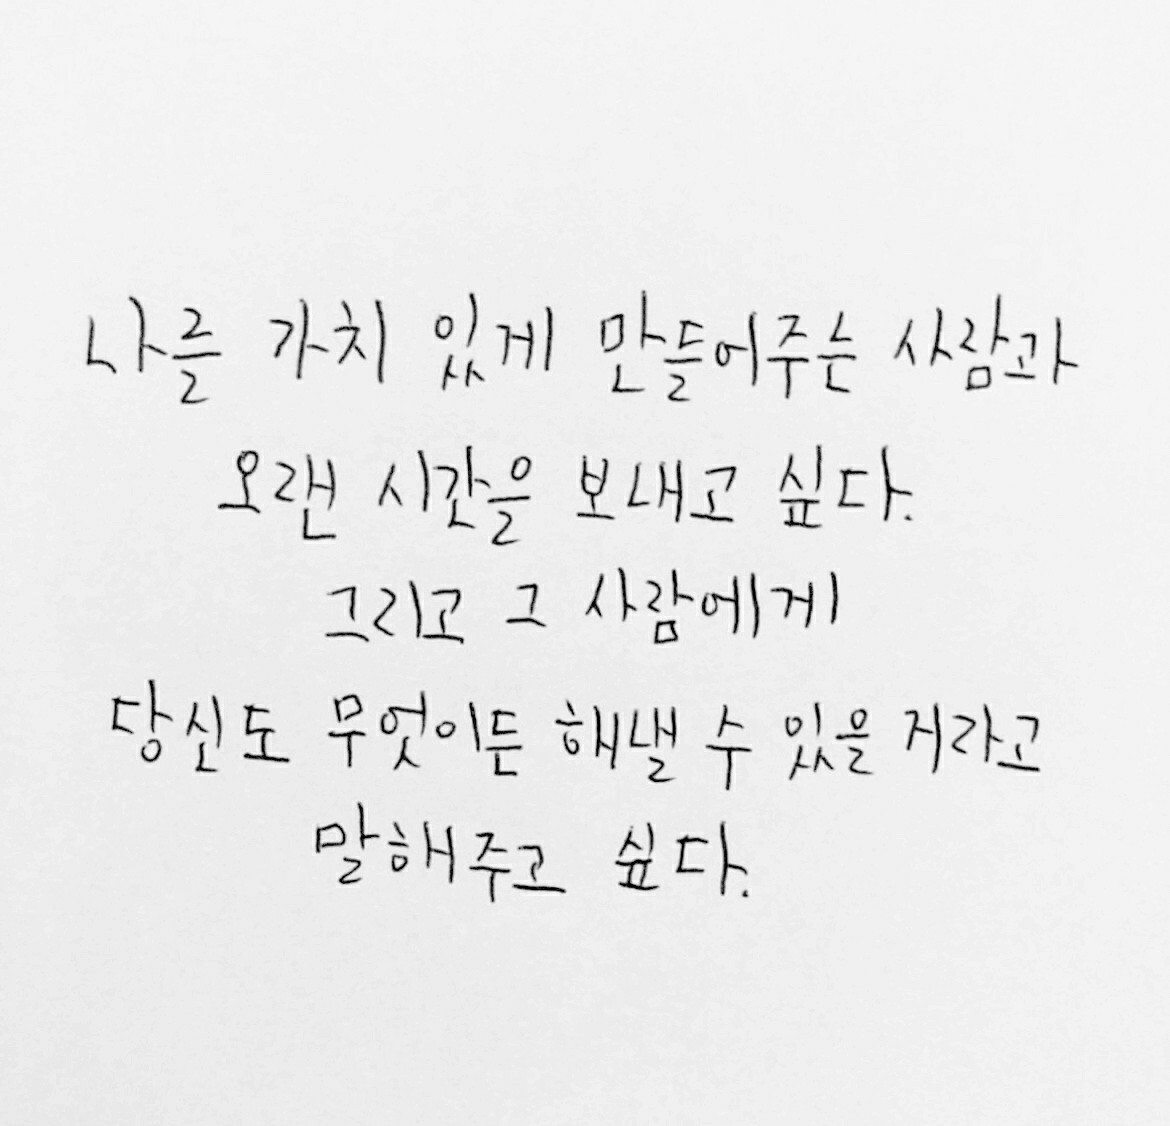 나를 가치 있게 만들어주는 사람과
오랜 시간을 보내고 싶다.
그리고 그 사람에게
당신도 무엇이든 해낼 수 있을 거라고
말해주고 싶다.